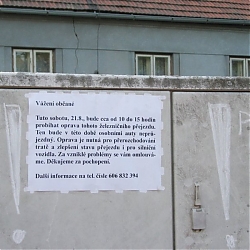 Vážení občané
Tuto sobotu, 21.8., bude cca od 10 do 15 hodin
probíhat oprava tohoto železničního přejezdu.
Ten bude v této době osobními auty neprů-
jezdný. Oprava je nutná pro přerozchodování
tratě a zlepšení stavu přejezdu i pro silniční
vozidla. Za vzniklé problémy se vám omlouvá-
me. Děkujeme za pochopení.
Další informace na tel. čísle 606 832 394